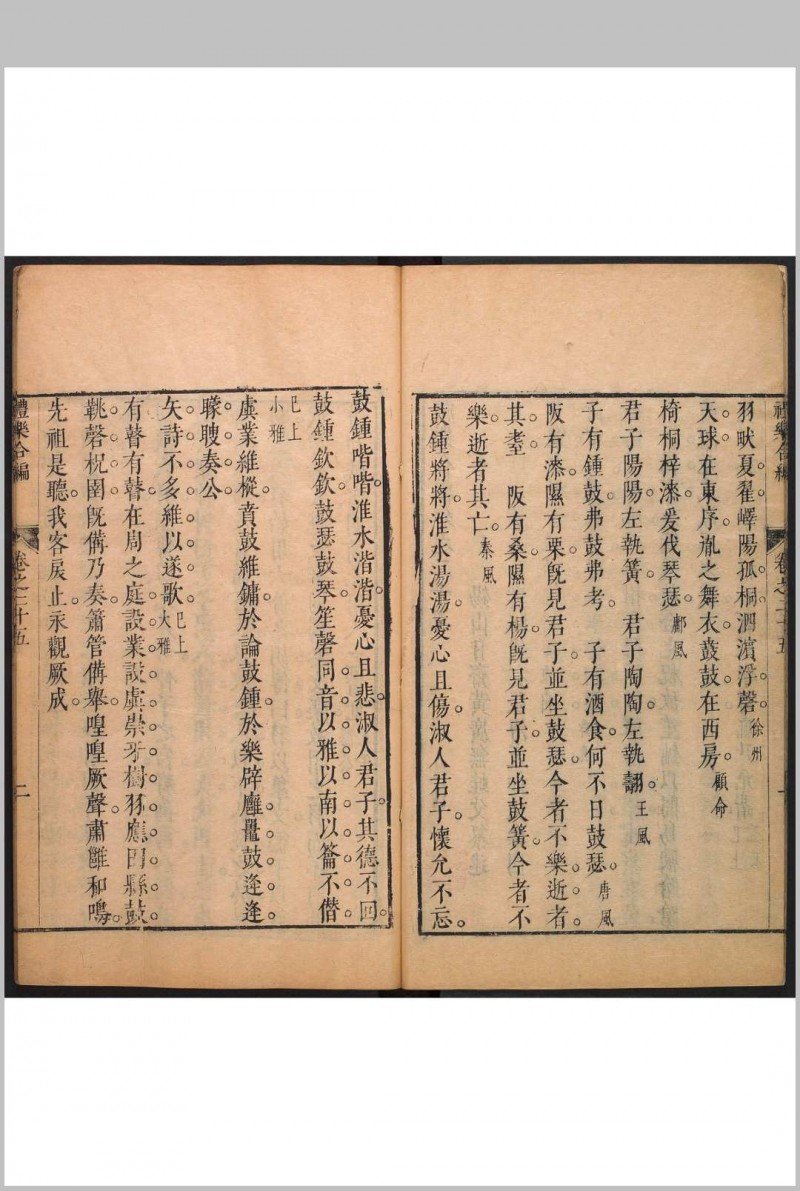 禮樂合編 卷之二十五
羽畎夏翟嶧陽孤桐泗濱浮磬徐州
天球在東序胤之舞衣鼖鼓在西房顧命
椅桐梓漆爰伐琴瑟鄘風
君子陽陽左執簧 君子陶陶左執翿王風
子有鍾鼓弗鼓弗考 子有酒食何不日鼓瑟唐風
阪有漆隰有栗旣見君子並坐鼓瑟今者不樂逝者
其耋 阪有桑隰有楊旣見君子並坐鼓簧今者不
樂逝者其亡秦風
鼓鍾將將淮水湯湯憂心且傷淑人君子懷允不忘
鼓鍾喈喈淮水湝湝憂心且悲淑人君子其德不回
鼓鍾欽欽鼓瑟鼓琴笙磬同音以雅以南以籥不僭
巳上小雅
虡業維樅賁鼓維鏞於論鼓鍾於樂辟廱鼉鼓逢逢
矇瞍奏公
矢詩不多維以遂歌巳上大雅
有瞽有瞽在周之庭設業設虡崇牙樹羽應田縣鼓
鞉磬柷圉旣備乃奏簫管備舉喤喤厥聲肅雝和鳴
先祖是聽我客戾止永觀厥成
禮樂合編 卷之二十五 二